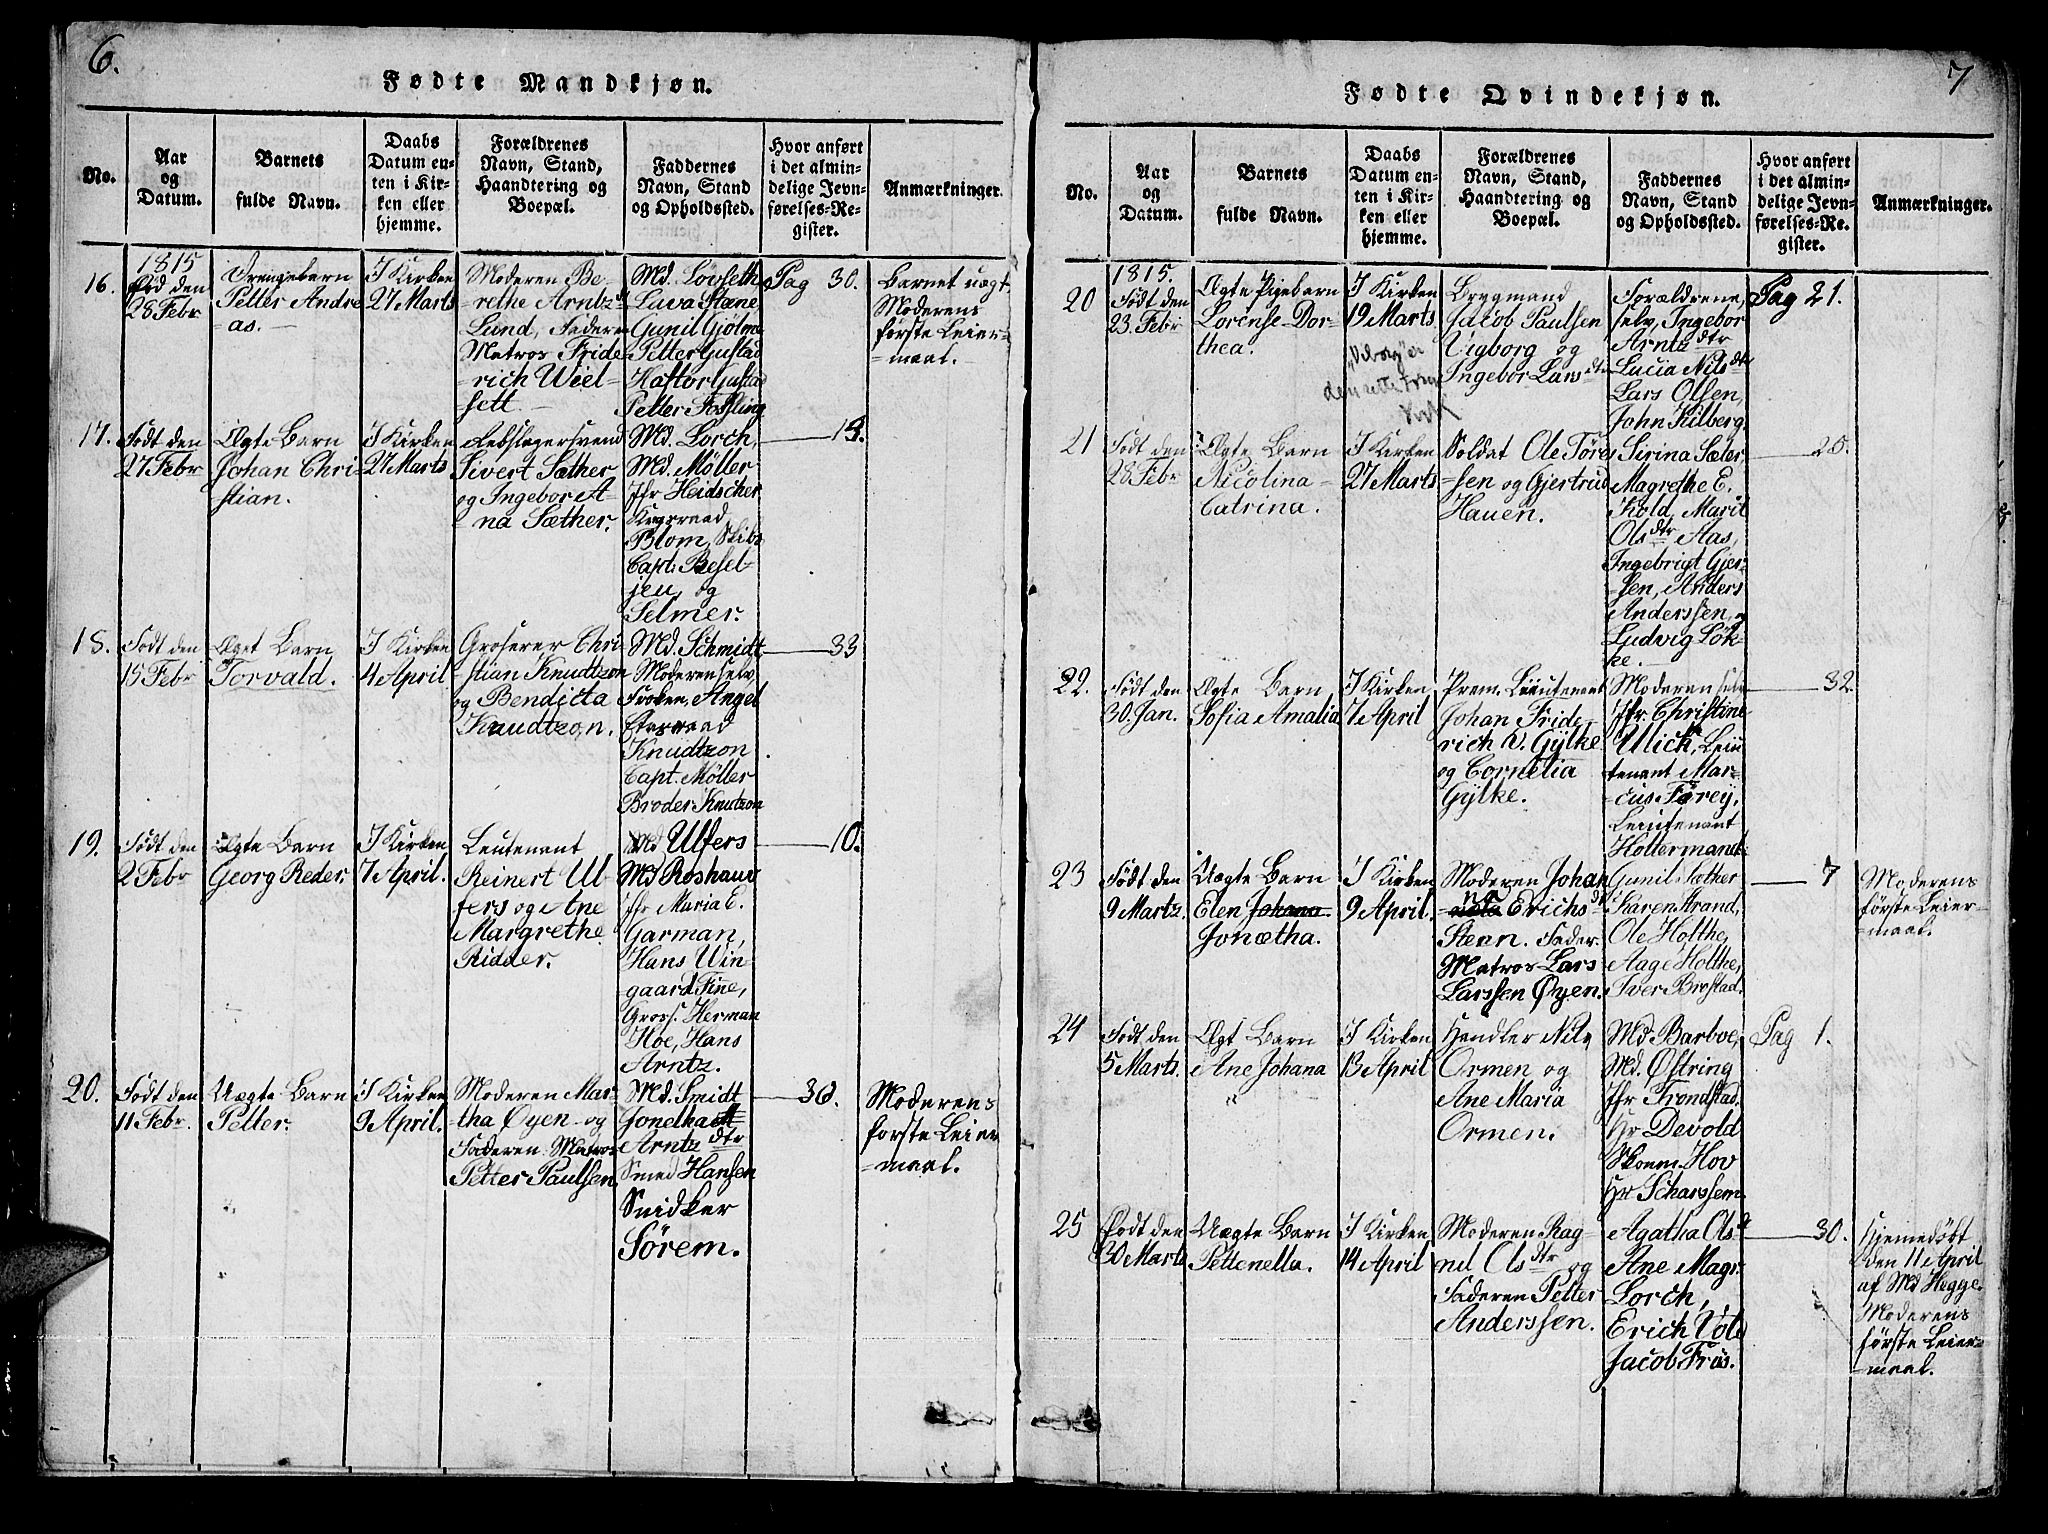 6.
Fødte Mandkjøn.
No.
Aar
og
Datum.
Barnets
fulde Navn.
Daabs
Datum en-
ten i Kir-
ken eller
hjemme.
Forældrenes
Navn, Stand,
Haandtering og
Boepæl.
Faddernes
Navn, Stand
og Opholdssted.
Hvor anført
i det almin-
delige Jevn-
førelses-Re-
gister.
Anmærkninger.
16.
1815
Fød den
28 Febr
Drengebarn
Petter Andre
as.
I Kirken
27 Marts
Moderen Be-
rethe Arntz dt
Lund, Faderen
Matros Fride
rich Wiel-
sett.
Md. Lövseth
Luva Stæne
Gunil Gjölme
Petter Gustad
Haftor Gustad
Petter Fosling
Pag 30.
Barnet uægt
Moderens
første Leier-
maal.
17.
Födt den
27 Febr
Ægte Barn
Johan Chri
stian.
I Kirken
27 Marts
Rebslagersvend
Sivert Sæther
og Ingebor A-
na Sæther.
Md. Lorch,
Md. Möller
Jfr Heidscher
Krigsraad
Blom, Skibs
Capt: Besel-
jeu, og
Selmer.
19.
18.
Födt den
15 Febr
Æget Barn
Torvald.
I Kirken
4 April
Groserer Chri
stian Knudtzon
og Bendicta
Knudtzon.
Md. Schmidt,
Moderen selv,
Froken Angel
Etatsraad
Knudtzon
Capt. Möller
Broder Knutzon
33
19.
Födt den
2 Febr
Ægte Barn
Georg Reder.
I Kirken
7 April.
Leutenant
Reinert Ul
fers og Ane
Margrethe
Ridder.
Md Ulfers
Md Roshauv
Jfr Maria E.
Garman,
Hans Win
gaard Fine,
Gross. Herman
Hoe, Hans
Arntz.
10.
20.
Födt den
11 Febr.
Uægte Barn
Petter.
I Kirken
9 April.
Moderen Mar
tha Øyen og
Faderen Matros
Petter Paulsen
Md. Smidt
Jonetha
Arntz dtr
Smed Hansen
Snidker
Sörem.
30.
Moderens
forste Leier
maal.
7
Fødte Qvindekjøn.
No.
Aar
og
Datum.
Barnets
fulde Navn.
Daabs
Datum en-
ten i Kir-
ken eller
hjemme.
Forældrenes
Navn, Stand,
Haandtering og
Boepæl.
Faddernes
Navn, Stand
og Opholdssted.
Hvor anført
i det almin-
delige Jevn-
førelses-Re-
gister.
Anmærkninger.
20
1815.
Födt den
23. Febr
Ægte Pigebarn
Lorense Dor-
thea.
I Kirken
19 Marts
"Viborg" er
den rette Form
Brygmand
Jacob Paulsen
Vigborg og
Ingebor Lars dtr
Forældrene
selv, Ingebor
Arntz dtr
Lucia Nils dtr
Lars Olsen,
John Kilberg.
Pag 21.
21
Födt den
28 Febr
Ægte Barn
Nicolina
Catrina.
I Kirken
27 Marts
Soldat Ole Töre
sen og Gjertrud
Hauen.
Sirina Sæter,
Magrethe E.
Kold, Marit
Ols dtr Aas,
Ingebrigt Gjer-
sen, Anders
Anderssen, og
Ludvig Lök-
ke.
25.
22.
Födt den
30. Jan.
Ægte Barn
Sofia Amalia
I Kirken
7 April
Prem. Lieutenant
Johan Fride-
rich v. Gylke
og Cornelia
Gylke.
Moderen selv
Jfr. Christine
Ulich, Leiu
tenant Mar-
cus Törey,
Leiutenant
Holtermand.
32.
23
Födt den
9 Martz.
Uægte Barn
Elen Johana
Jonætha.
I Kirken
9 April.
Moderen Johan
na Erichs dt
Steen. Fader.
Matros Lars
Larssen Øyen.
Gunil Sæther
Karen Strand,
Ole Holthe,
Aage Holthe,
Iver Brostad.
7
Moderens
første Leier-
maal.
24
Födt den
5 Marts.
Ægt Barn
Ane Johana
I Kirken
13 April
Handler Nils
Ormen og
Ane Maria
Ormen.
Md Barboe,
Md. Øftring
Jfr Trondstad.
Hr Devold
Skoem. Hov
Hr Scharssem.
Pag 1.
25
Födt den
30 Marts
Uægte Barn
Pettenella.
I Kirken
14 April
Moderen Rag-
nil Ols dtr og
Faderen Petter
Anderssen.
Agatha Ols dt
Ane Magr.
Lorch,
Erich Vold
Jacob Friis.
30.
Hjemedøbt
den 11 April
af Md Hegge.
Moderens
første Leier-
maal.